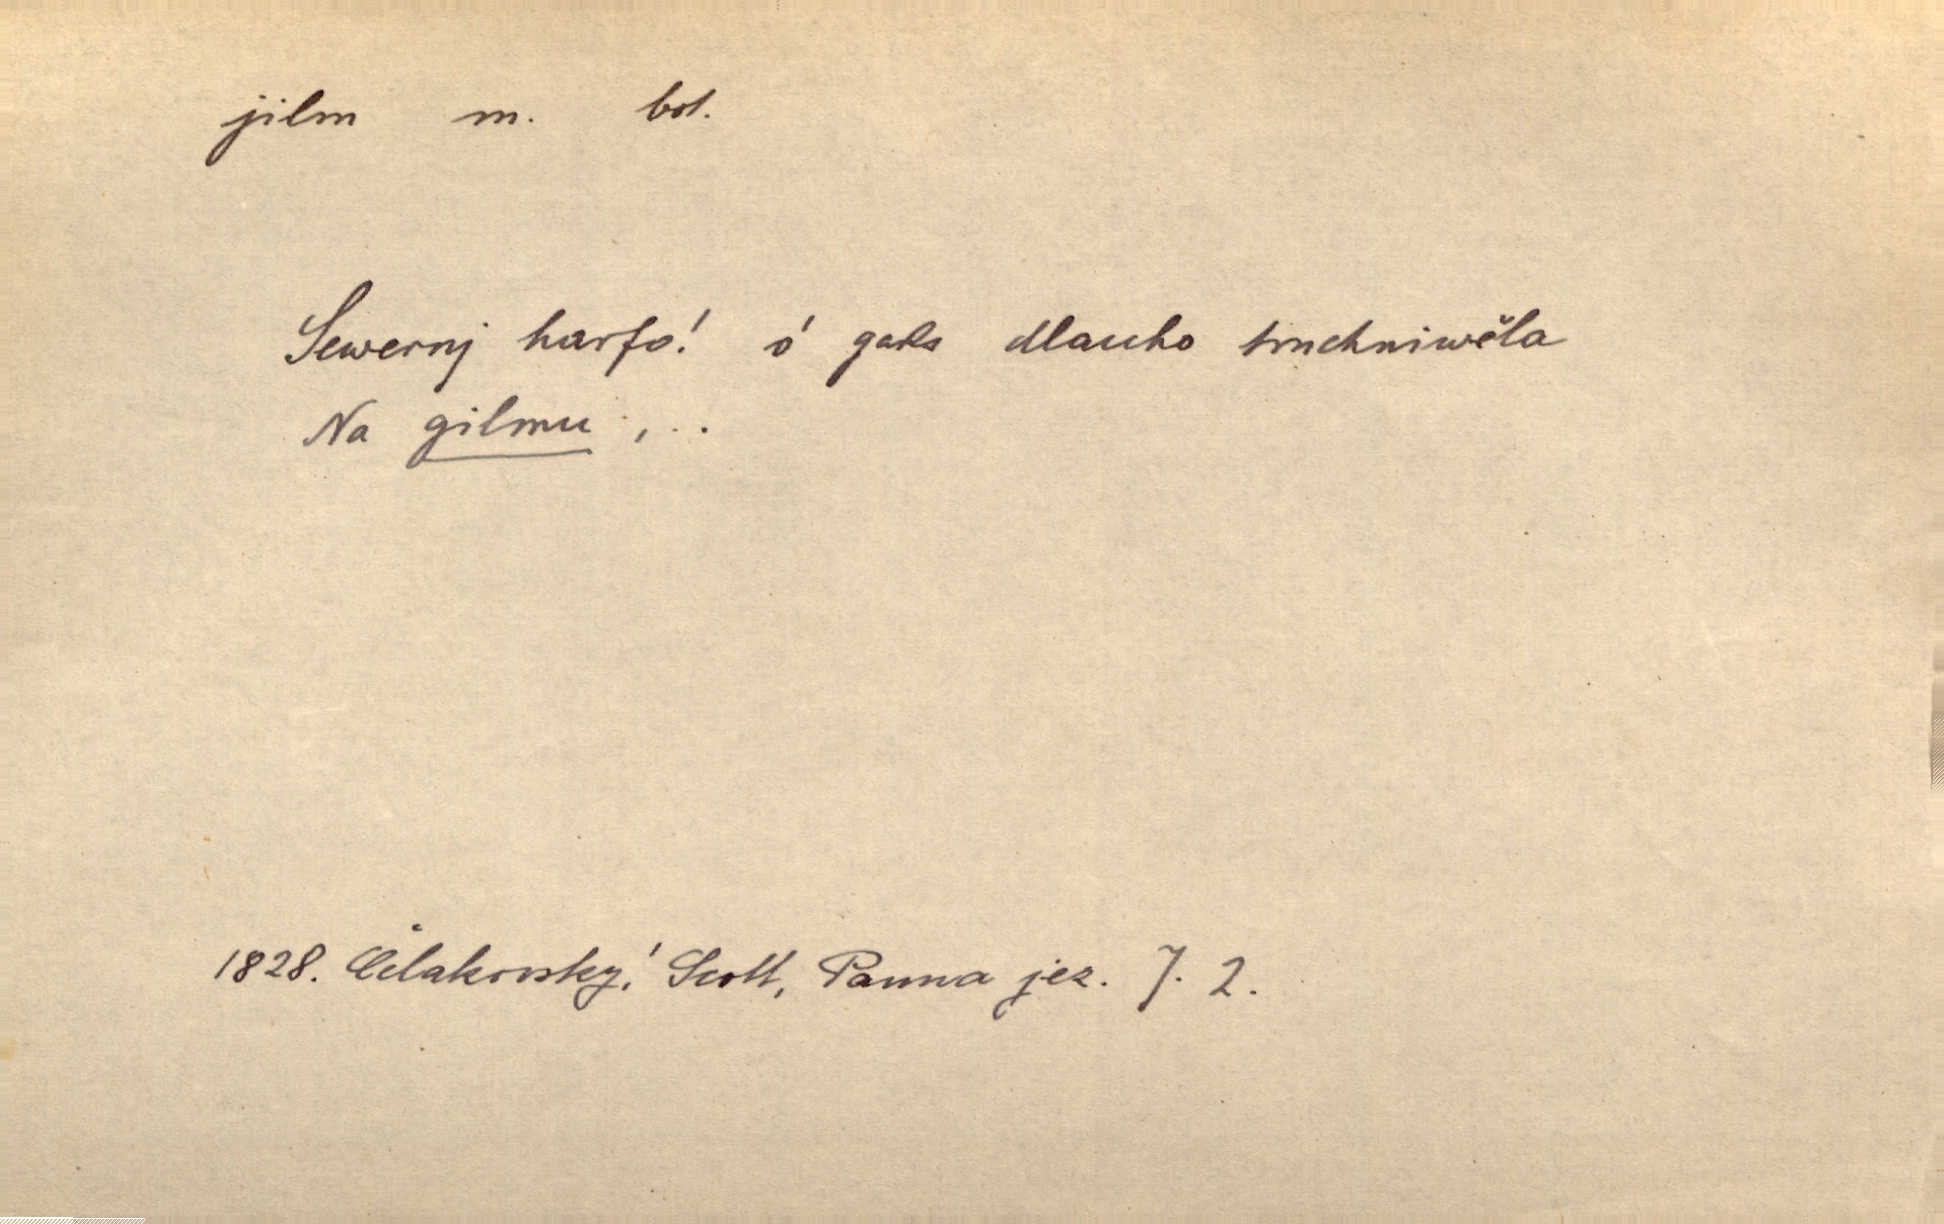 jilm m. bot.
Sewernj harfo! ó gaks dlauho truchniwěla
Na gilmu , . .
1828. Čelakovský, Scott, Panna jez. J. 2.